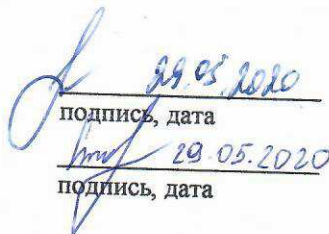 29.05.2020
подпись, дата
29.05.2020
подпись, дата